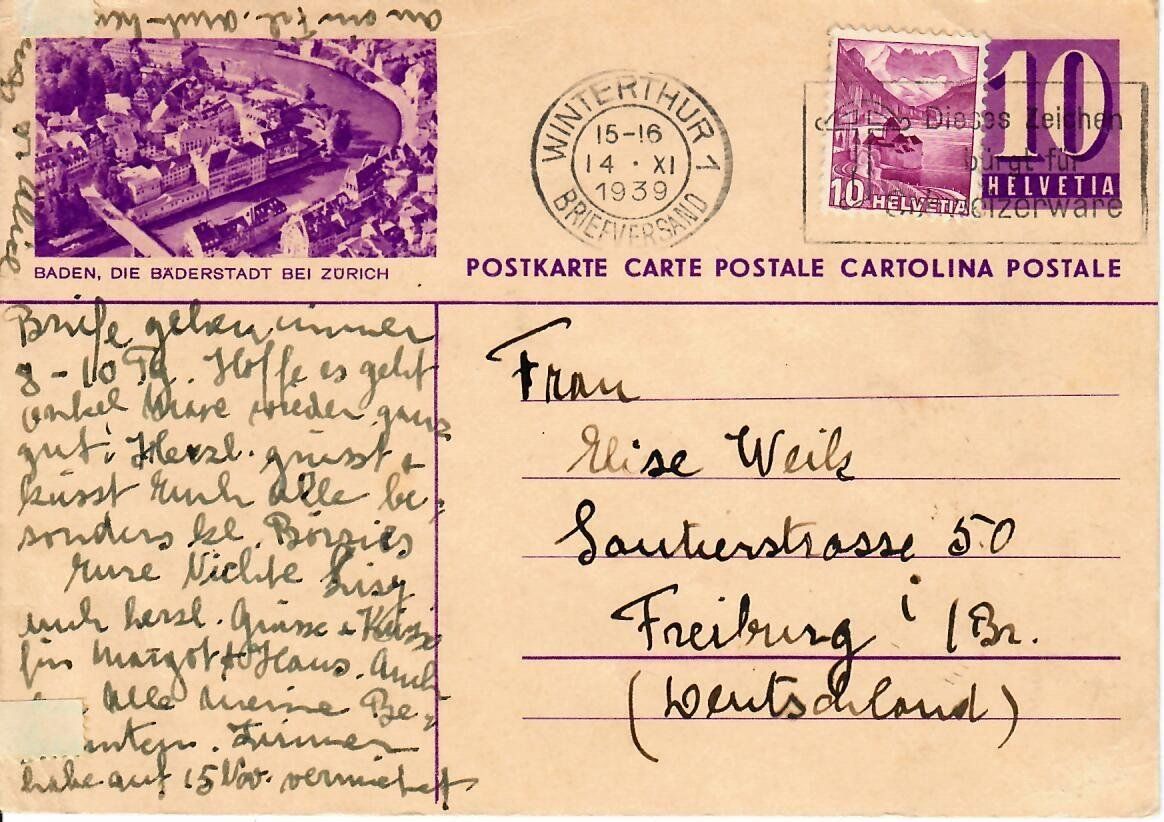 an ein Frl.
BADEN, DIE BÄDERSTADT BEI ZÜRICH
WINTERTHUR 1
15-16
14 · XI
1939
BRIEFVERSAND
10 HELVETIA
10
HELVETIA
Dieses Zeichen
bürgt für
Schweizerware
POSTKARTE CARTE POSTALE CARTOLINA POSTALE
Briefe gehen immer
8-10 Tg. Hoffe es geht
onkel Marx wieder ganz
gut. Herzl. grüsst &
küsst Euch alle be-
sonders kl.
Eure Nichte Lisy
auch herzl. Grüsse & Küsse
für Margot & Hans. Auch
Alle meine Be-
nnten. Zimmer
habe auf 15 Nov. vermietet
Frau
Elise Weil
Sautierstrasse 50
Freiburg i/Br.
(Deutschland)